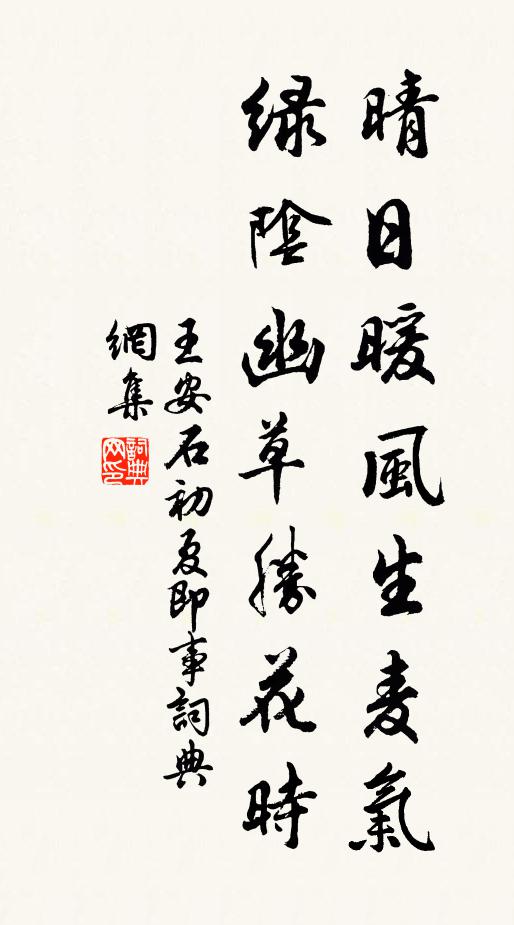 晴日暖風生麦氣
緑陰幽草勝花時
王安石初夏即事詞典
網集
詞典
网印